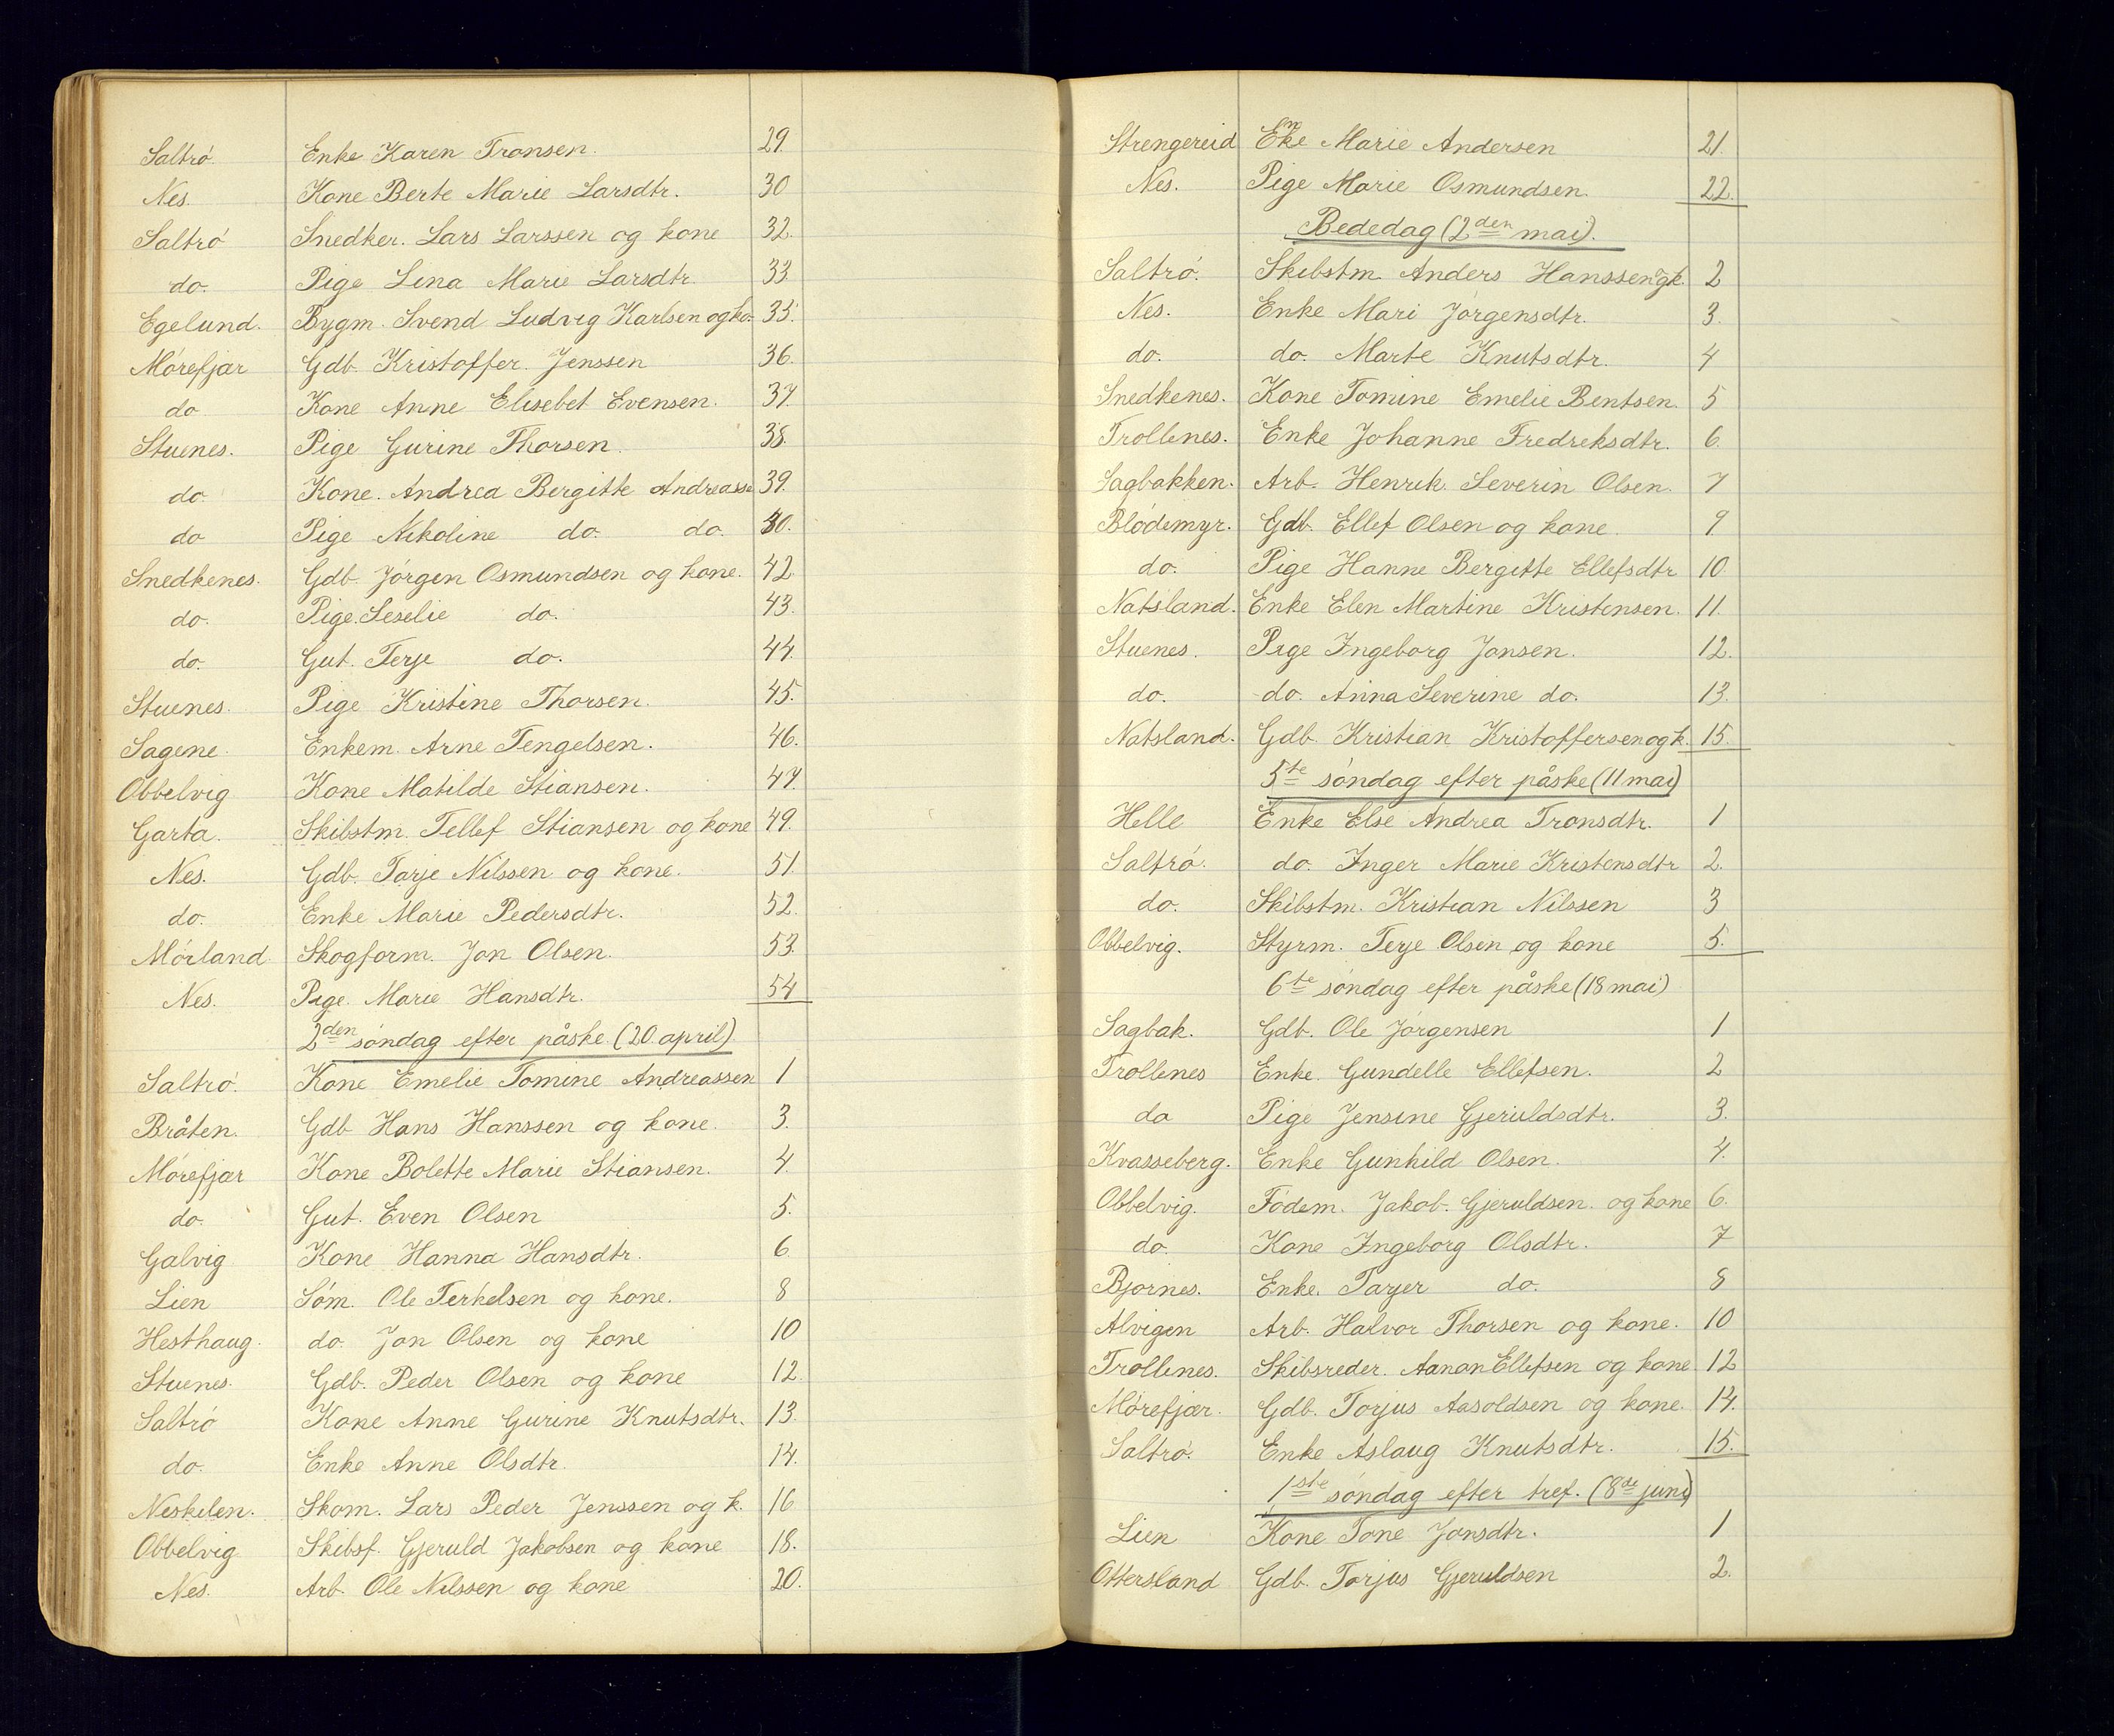 Saltrö. Enke Karen Tronsen. 29.
Nes. Kone Berte Marie Larsdtr. 30
Saltrö Snedker. Lars Larssen og kone 32.
do. Pige Lina Marie Larsdtr. 33.
Egelund. Bygm. Svend Ludvig Karlsen og ko. 35.
Mörefjær Gdb. Kristoffer Jenssen 36.
do Kone Anne Elisebet Evensen. 37.
Stuenes. Pige Gurine Thorsen. 38.
do. Kone. Andrea Bergitte Andreasse 39.
do Pige Nikoline do. do. 40.
Snedkenes. Gdb. Jörgen Osmundsen og kone. 42.
do. Pige. Leselie do. 43.
do. Gut. Terje do. 44.
Stuenes. Pige Kristine Thorsen. 45.
Sagene. Enkem. Arne Tengelsen. 46.
Obbelvig Kone Matilde Stiansen. 47.
Garta. Skibstm. Tellef Stiansen og kone 49.
Nes. Gdb. Tarje Nilssen og kone. 51.
do. Enke Marie Pedersdtr. 52.
Mörland. Skogform. Jon Olsen. 53.
Nes. Pige. Marie Hansdtr. 54
2den söndag efter påske (20. april)
Saltrö. Kone Emelie Tomine Andreassen 1
Bråten. Gdb Hans Hanssen og kone. 3.
Mörefjær Kone Bolette Marie Stiansen. 4.
do. Gut. Even Olsen 5.
Galvig Kone Hanna Hansdtr. 6
Lien Söm. Ole Terkelsen og kone. 8
Hesthaug. do. Jon Olsen og kone 10
Stuenes. Gdb. Peder Olsen og kone 12.
Saltrö Kone Anne Gurine Knutsdtr. 13.
do. Enke Anne Olsdtr. 14.
Neskilen. Skom. Lars Peder Jenssen og k. 16
Obbelvig Skibsf. Gjeruld Jakobsen og kone 18.
Nes. Arb. Ole Nilssen og kone 20.
Strengereid Enke Marie Andersen 21.
Nes. Pige Marie Osmundsen. 22.
Bededag (2den mai).
Saltrö. Skibstm. Anders Hanssen og k. 2
Nes. Enke Mari Jörgensdtr. 3.
do. do. Marte Knutsdtr. 4
Snedkenes. Kone Tomine Emelie Bentsen. 5
Trollenes. Enke Johanne Fredreksdtr. 6.
Sagbakken. Arb. Henrik Severin Olsen. 7
Blödemyr. Gdb. Ellef Olsen og kone. 9.
do. Pige Hanne Bergitte Ellefsdtr 10.
Natsland. Enke Elen Martine Kristensen. 11.
Stuenes. Pige Ingeborg Jonsen. 12.
do. do. Anna Severine do. 13.
Natsland. Gdb. Kristian Kristoffersen og k. 15.
5te söndag efter påske (11 mai)
Helle Enke Else Andrea Tronsdtr. 1
Saltrö. do. Inger Marie Kristensdtr 2.
do. Skibstm. Kristian Nilssen 3
Obbelvig. Styrm. Terje Olsen og kone 5.
6te söndag efter påske (18 mai)
Sagbak. Gdb. Ole Jörgensen 1
Trollenes Enke. Gundelle Ellefsen. 2
do Pige Jensine Gjeruldsdtr. 3.
Kvasseberg. Enke Gunhild Olsen. 4.
Obbelvig. Födem. Jakob. Gjeruldsen. og kone 6.
do. Kone Ingeborg Olsdtr. 7
Bjornes. Enke. Tarjer do. 8
Alvigen Arb. Halvor Thorsen og kone. 10
Trollenes. Skibsreder. Aanon Ellefsen og kone 12
Mörefjær. Gdb. Torjus Aasoldsen og kone. 14.
Saltrö. Enke Aslaug Knutsdtr. 15.
1ste söndag efter tref. (8de juni)
Lien Kone Tone Jonsdtr. 1
Ottersland Gdb. Torjus Gjeruldsen 2.